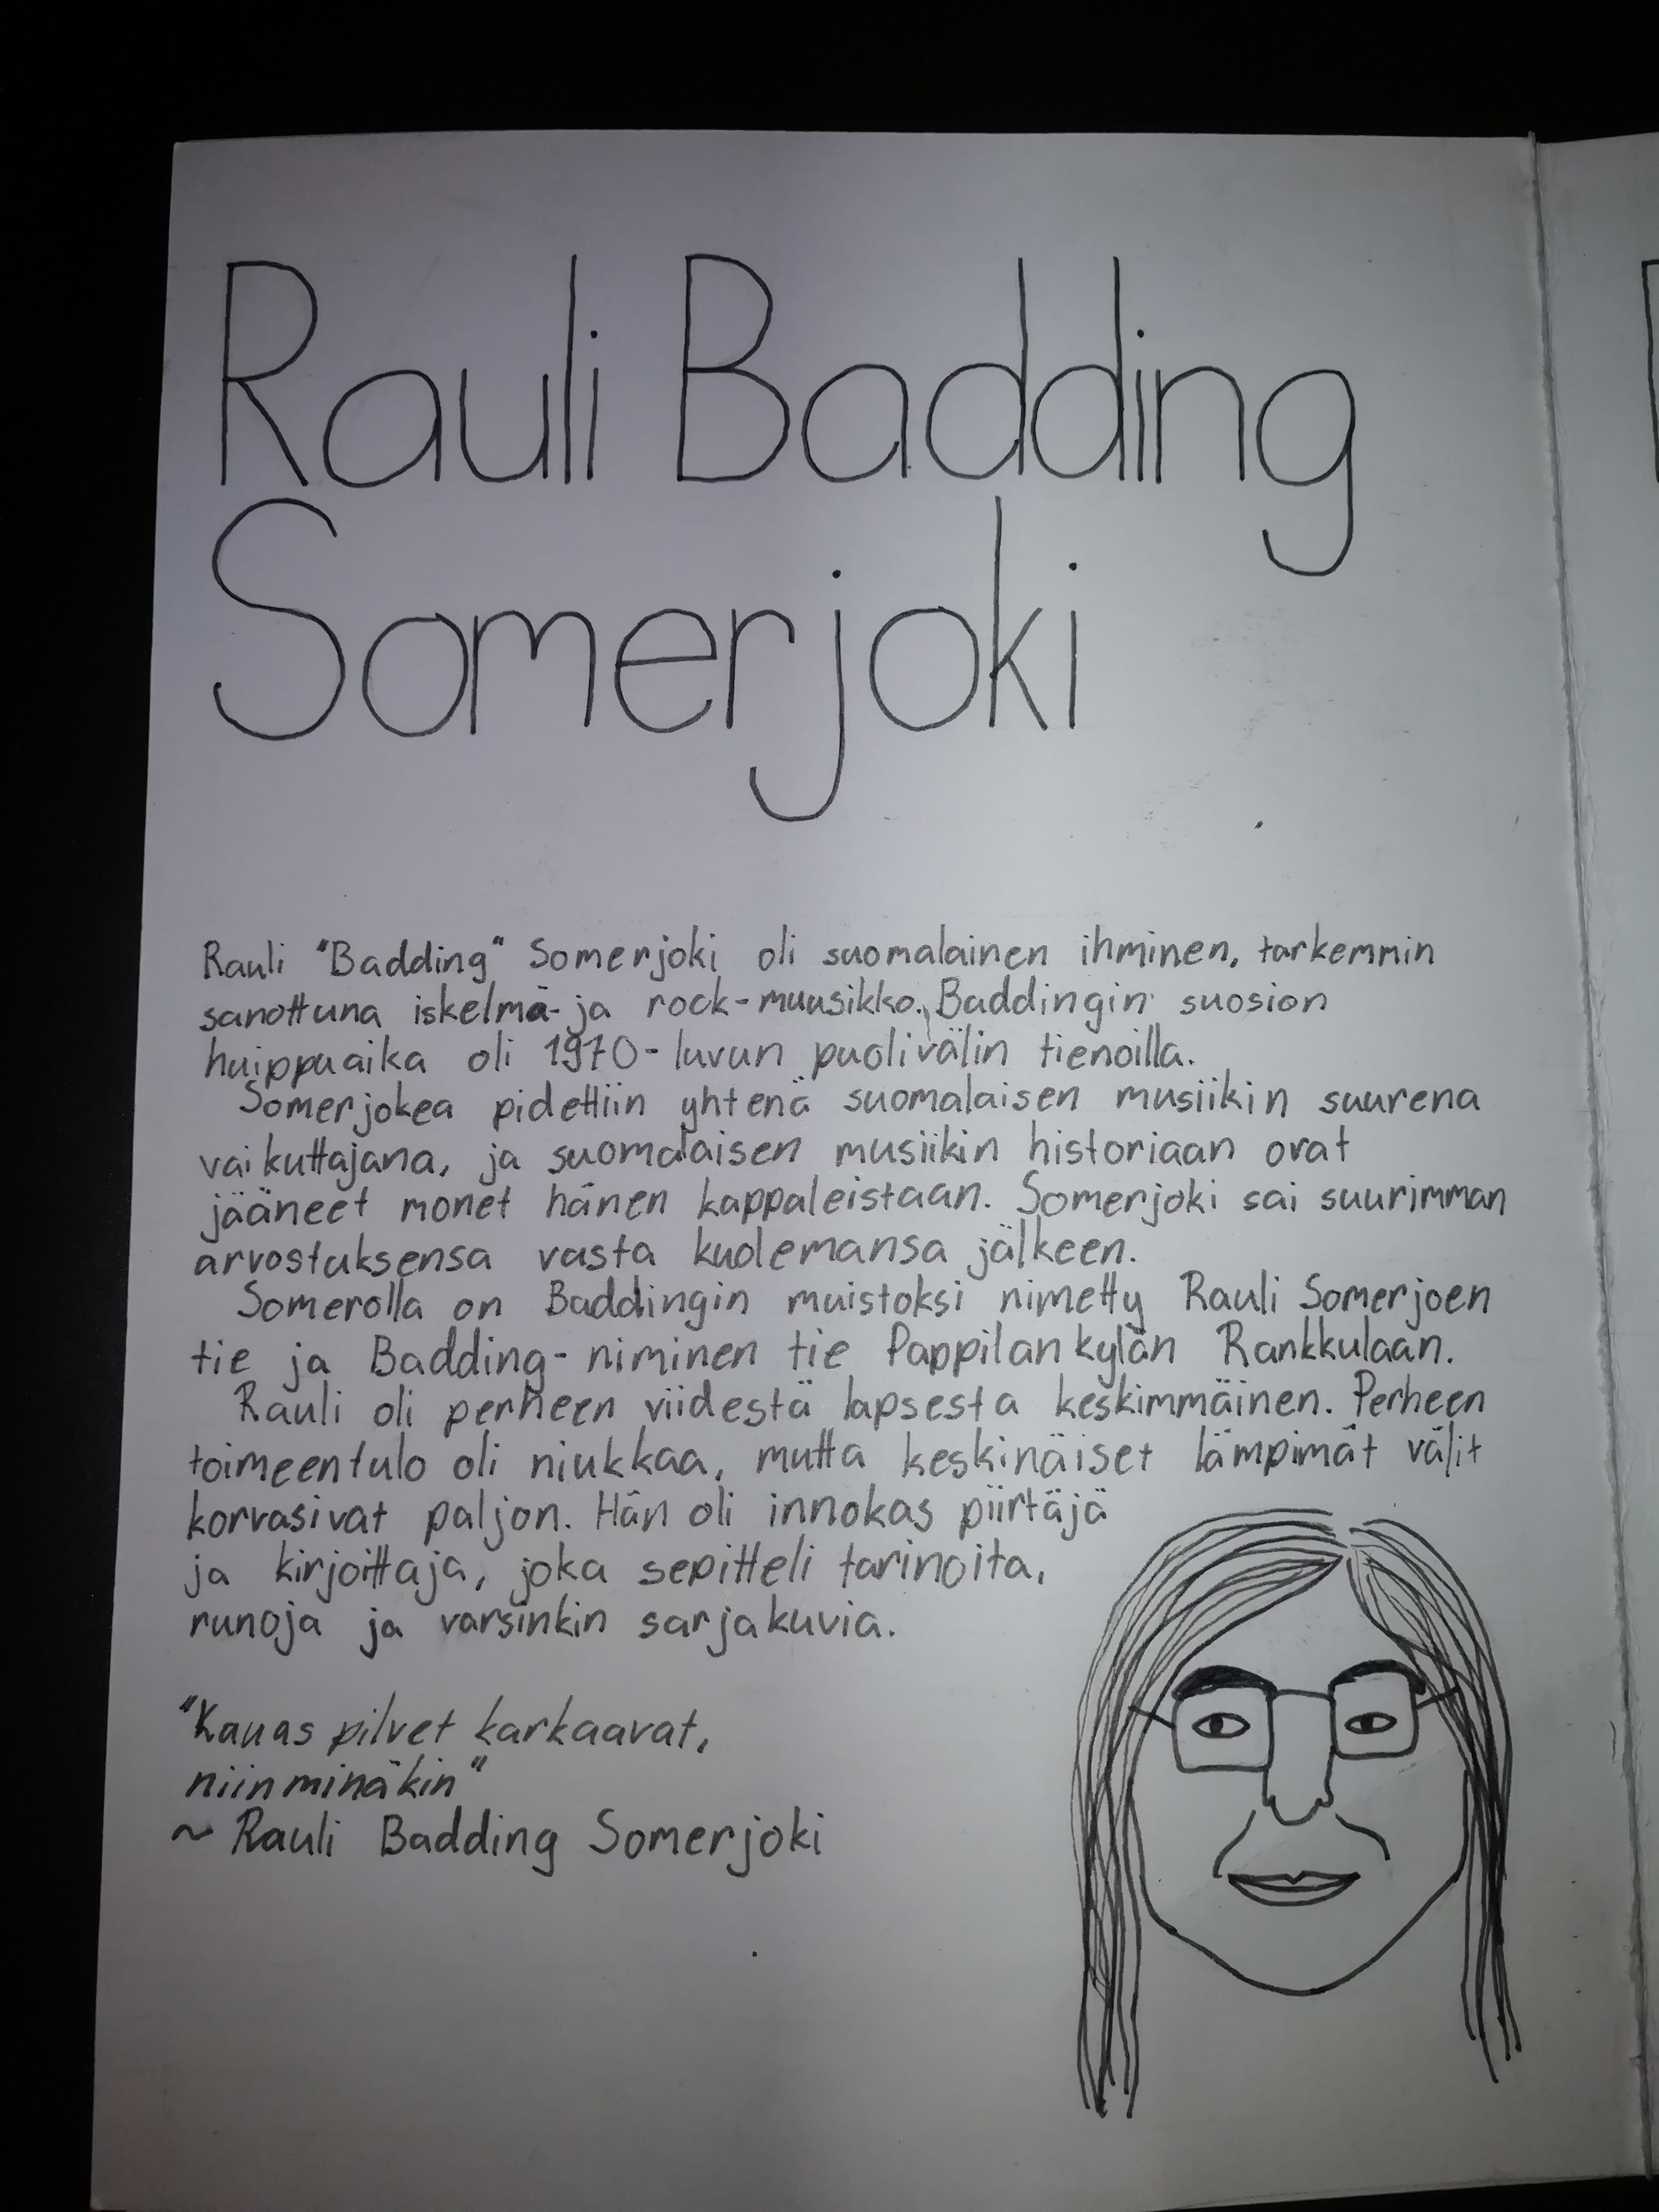 Rauli Badding
Somerjoki
Rauli "Badding" Somerjoki oli suomalainen ihminen, tarkemmin
sanottuna iskelmä- ja rock-muusikko. Baddingin suosion
huippuaika oli 1970-luvun puolivälin tienoilla.
Somerjokea pidettiin yhtenä suomalaisen musiikin suurena
vaikuttajana, ja suomalaisen musiikin historiaan ovat
jääneet monet hänen kappaleistaan. Somerjoki sai suurimman
arvostuksensa vasta kuolemansa jälkeen.
Somerolla on Baddingin muistoksi nimetty Rauli Somerjoen
tie ja Badding-niminen tie Pappilankylän Rankkulaan.
Rauli oli perheen viidestä lapsesta keskimmäinen. Perheen
toimeentulo oli niukkaa, mutta keskinäiset lämpimät välit
korvasivat paljon. Hän oli innokas piirtäjä
ja kirjoittaja, joka sepitteli tarinoita,
runoja ja varsinkin sarjakuvia.
"Kauas pilvet karkaavat,
niin minäkin"
~ Rauli Badding Somerjoki